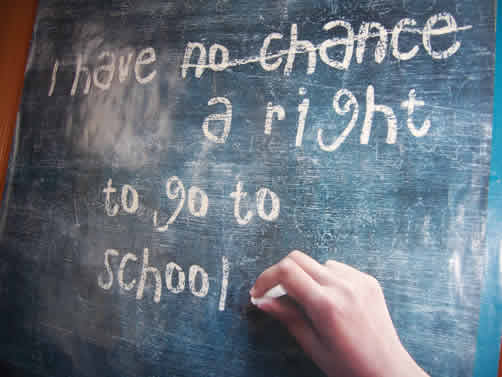 I have no chance
a right
to go to
school